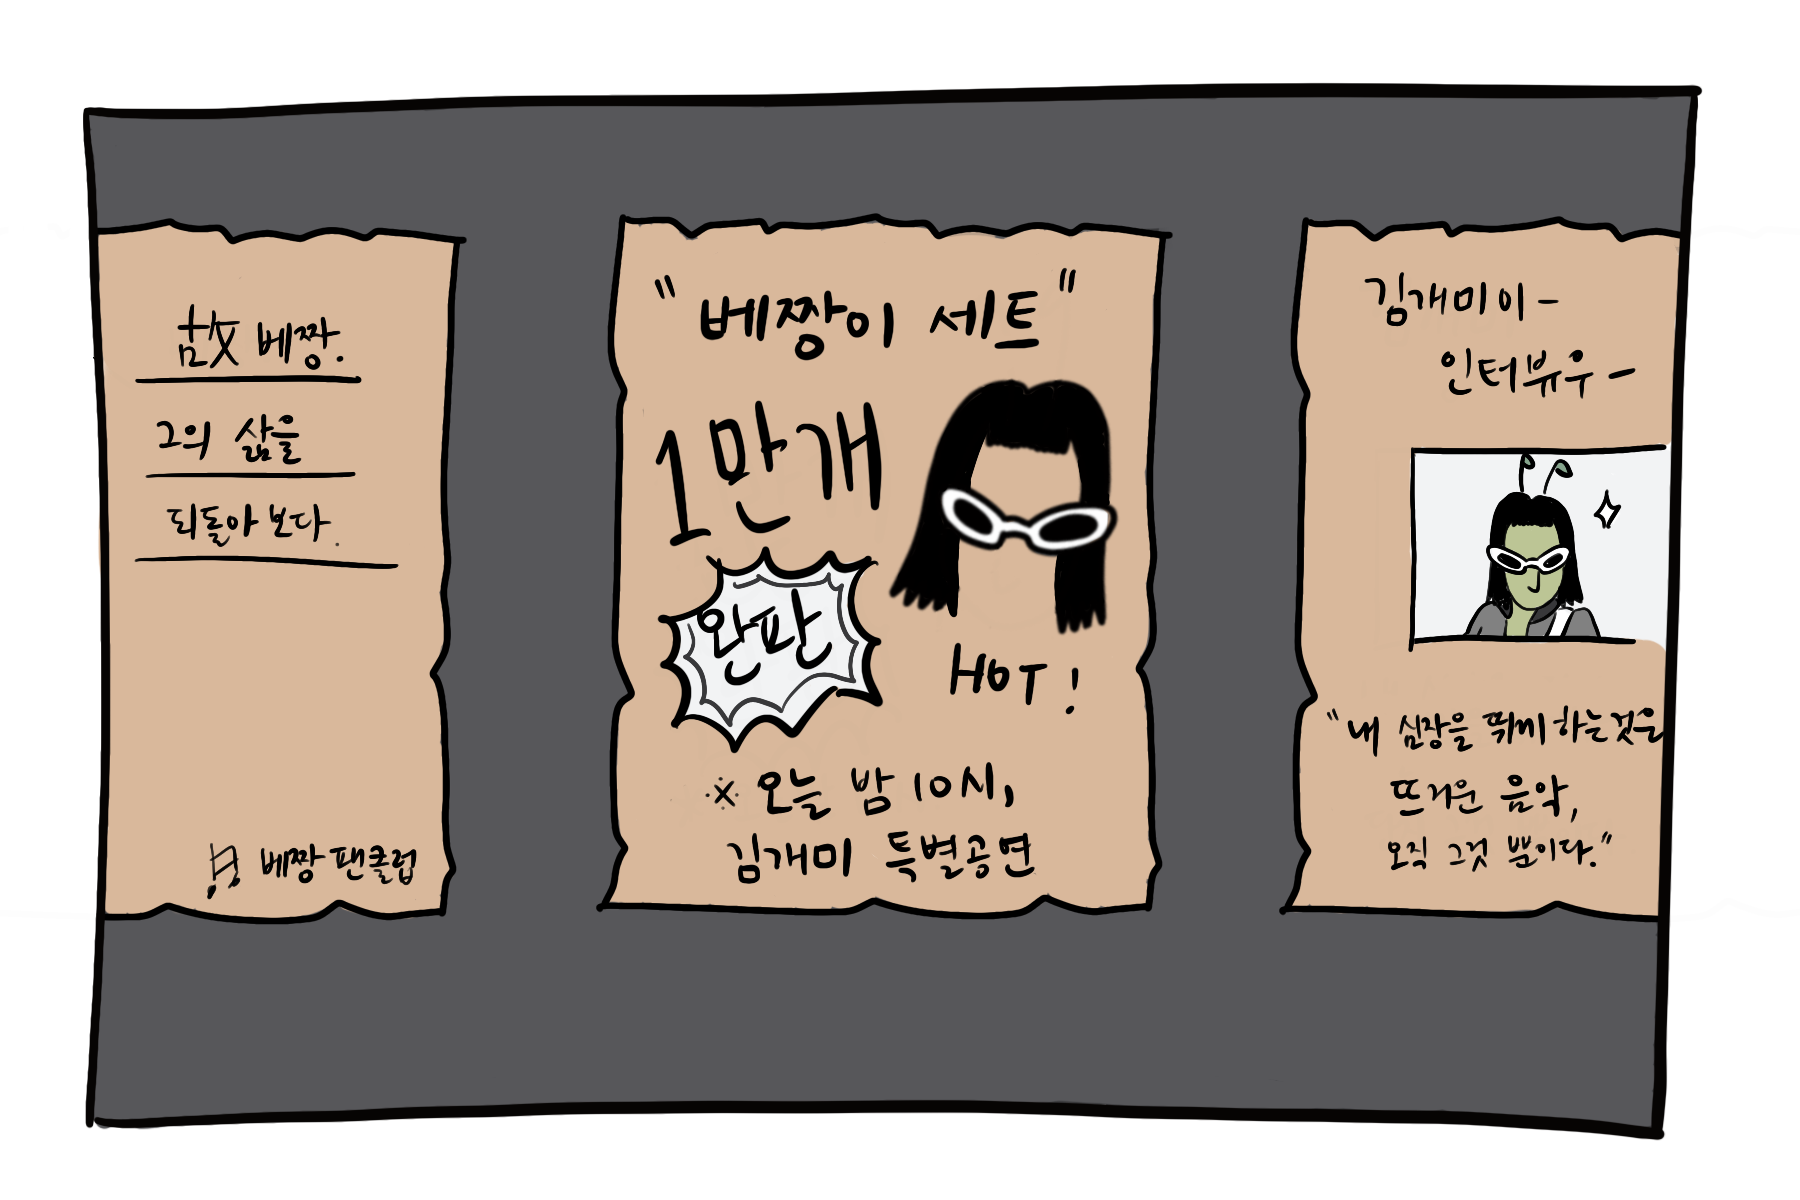 故 베짱.
그의 삶을
되돌아 보다.
베짱 팬클럽
"베짱이 세트"
1만개
완판
HOT!
※ 오늘 밤 10시,
김개미 특별공연
김개미이-
인터뷰우-
"내 심장을 뛰게 하는것은
뜨거운 음악,
오직 그것 뿐이다."